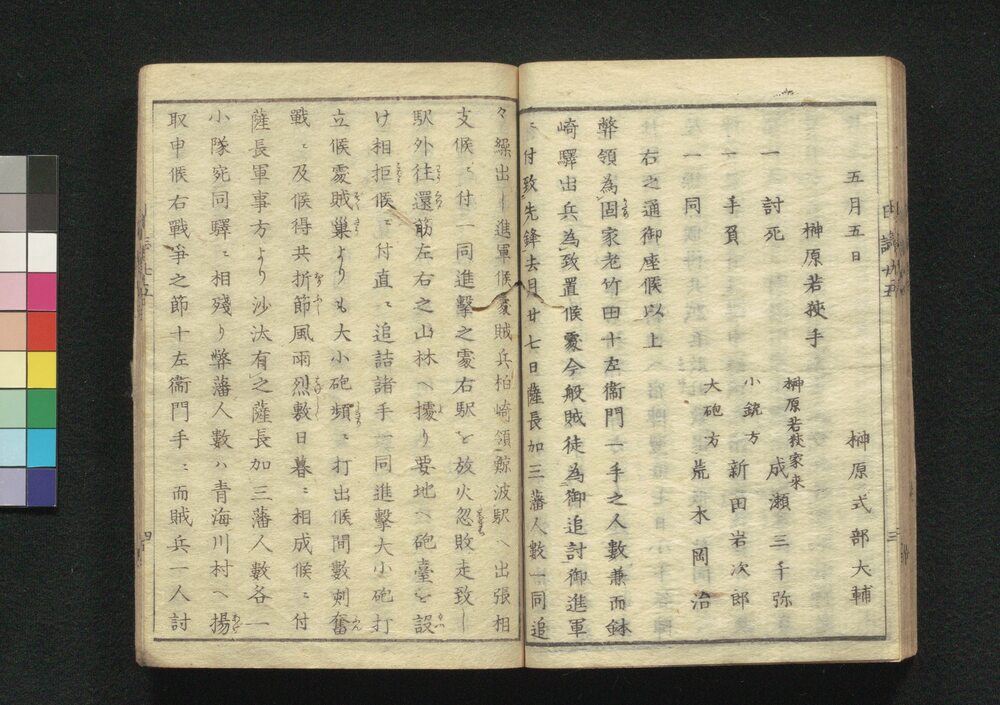 五月五日
榊原式部大輔
榊原若狹手
榊原若狹家来
一討死
成瀬三千弥
小銃方
一手負
新田岩次郎
大砲方
一同
荒木岡治
右之通御座候以上
弊領為固家老竹田十左衞門一手之人數兼而鉢
崎驛出兵為致置候處今般賊徒為御追討御進軍
ニ付致先鋒去月廿七日薩長加三藩人數一同追
々繰出し進軍候處賊兵柏崎領鯨波駅へ出張相
支候ニ付一同進擊之處右駅を放火忽敗走致し
駅外往還筋左右之山林へ據り要地へ砲臺を設
け相拒候ニ付直ニ追詰諸手一同進擊大小砲打
立候處賊巢よりも大小砲頻ニ打出候間數剋奮
戰ニ及候得共折節風雨烈敷日暮ニ相成候ニ付
薩長軍事方より沙汰有之薩長加三藩人數各一
小隊宛同驛ニ相殘り弊藩人數ハ青海川村へ揚
取申候右戰爭之節十左衞門手ニ而賊兵一人討
四
三